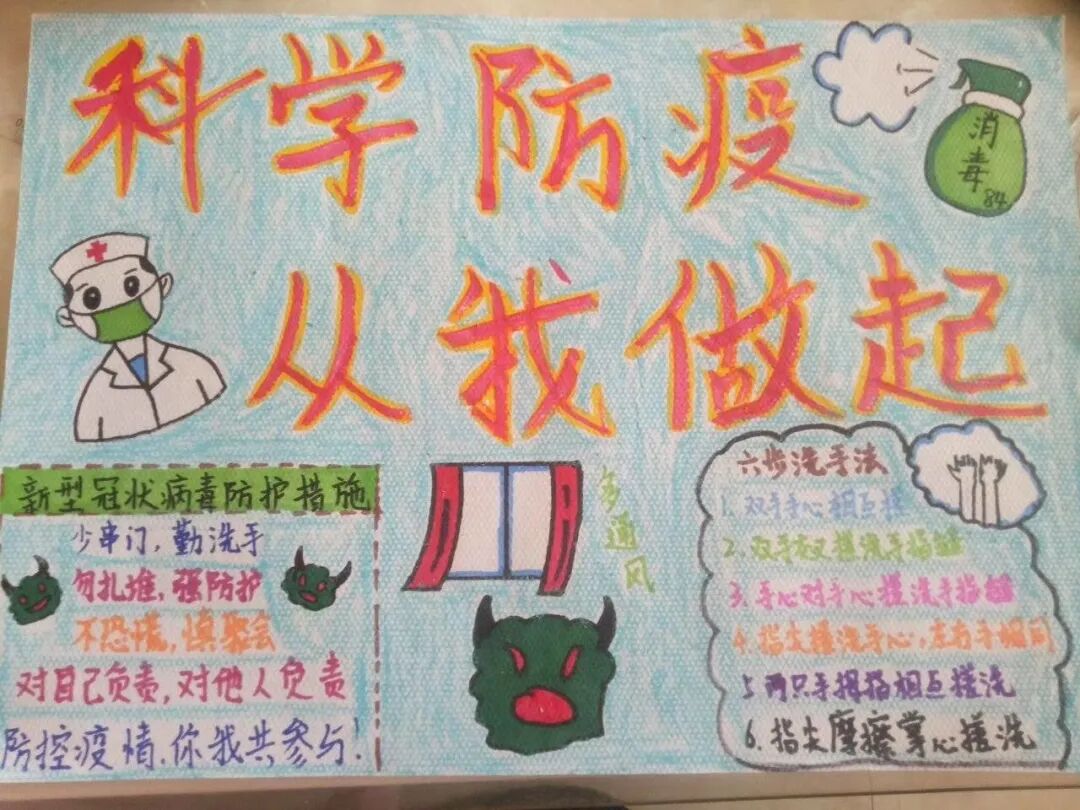 科学防疫
消毒
84
从我做起
新型冠状病毒防护措施
少串门，勤洗手
勿扎堆，强防护
不恐慌，慎聚会
对自己负责，对他人负责
防控疫情，你我共参与！
多通风
六步洗手法
1. 双手手心相互搓
2. 双手交叉搓洗手指缝
3. 手心对手心搓洗手指缝
4. 指尖搓洗手心，左右手相同
5 两只手拇指相互搓洗
6. 指尖摩擦掌心搓洗